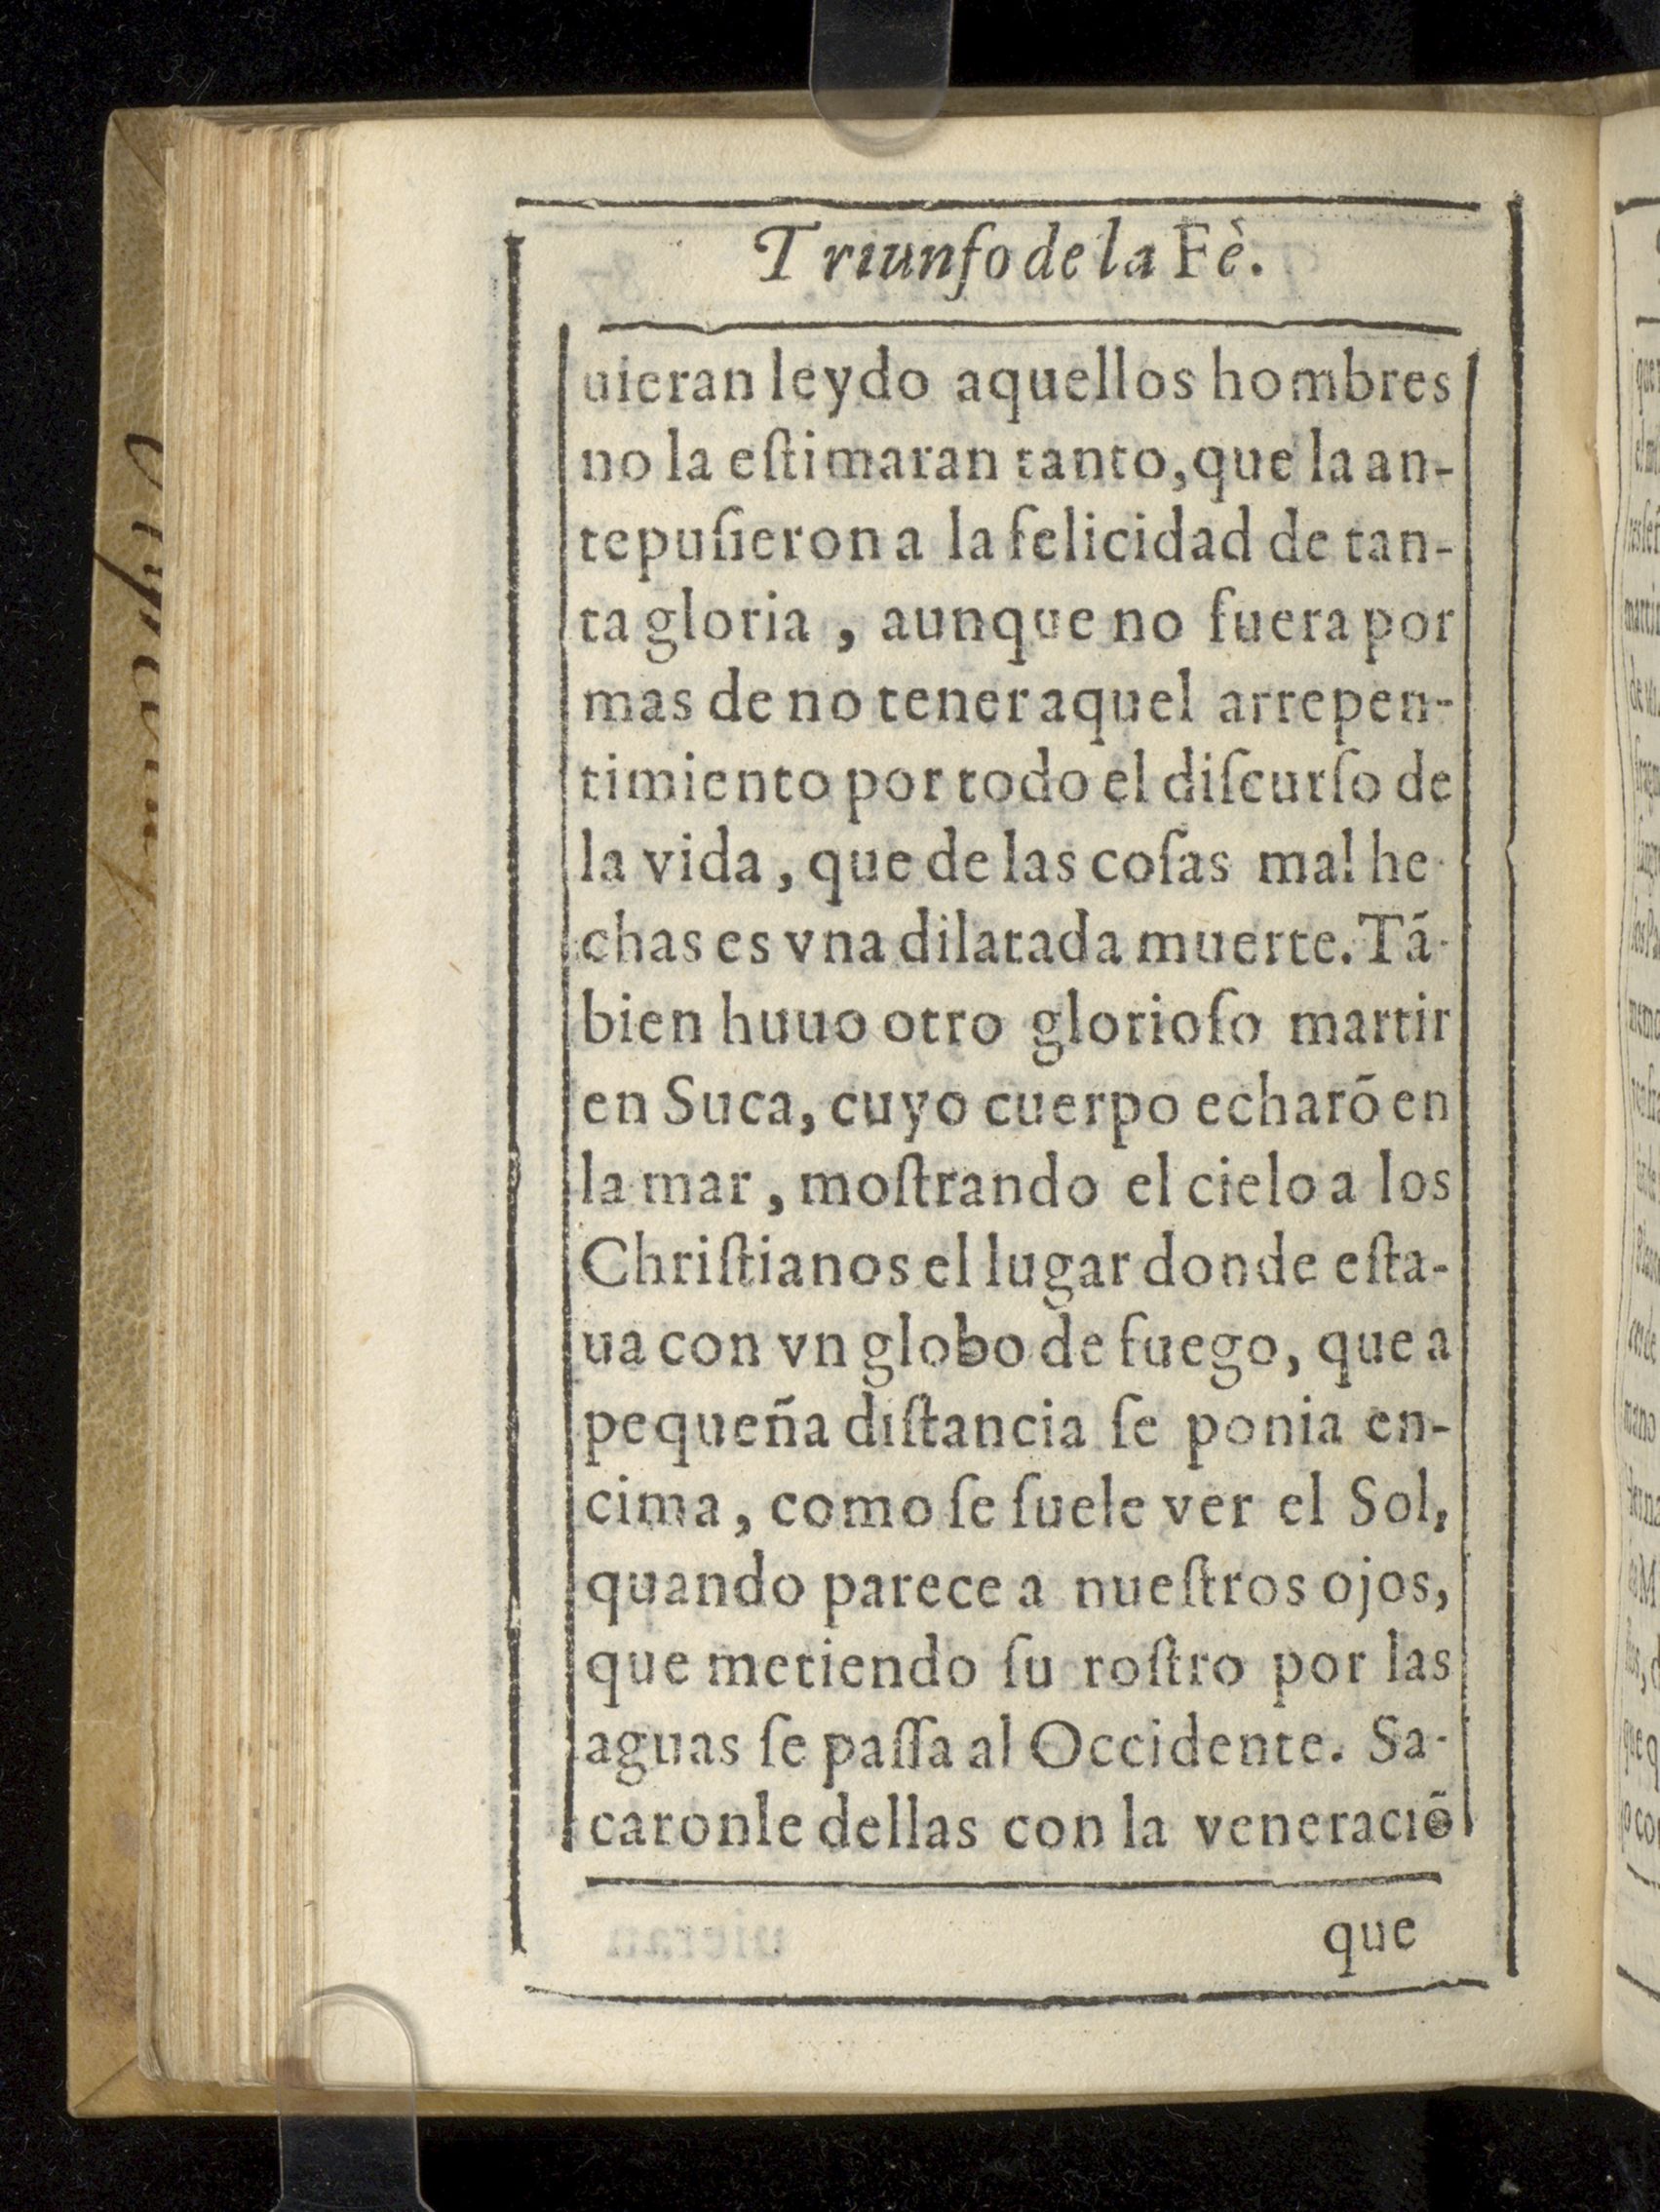 Triunfo de la Fè.
uieran leydo aquellos hombres
no la eſtimaran tanto, que la an-
tepuſieron a la felicidad de tan-
ta gloria, aunque no fuera por
mas de no tener aquel arrepen-
timiento por todo el diſcurſo de
la vida, que de las coſas mal he-
chas es vna dilatada muerte. Tã-
bien huuo otro glorioſo martir
en Suca, cuyo cuerpo echarõ en
la mar, moſtrando el cielo a los
Chriſtianos el lugar donde eſta-
ua con vn globo de fuego, que a
pequeña diſtancia ſe ponia en-
cima, como ſe ſuele ver el Sol,
quando parece a nueſtros ojos,
que metiendo ſu roſtro por las
aguas ſe paſſa al Occidente. Sa-
caronle dellas con la veneraciõ
que